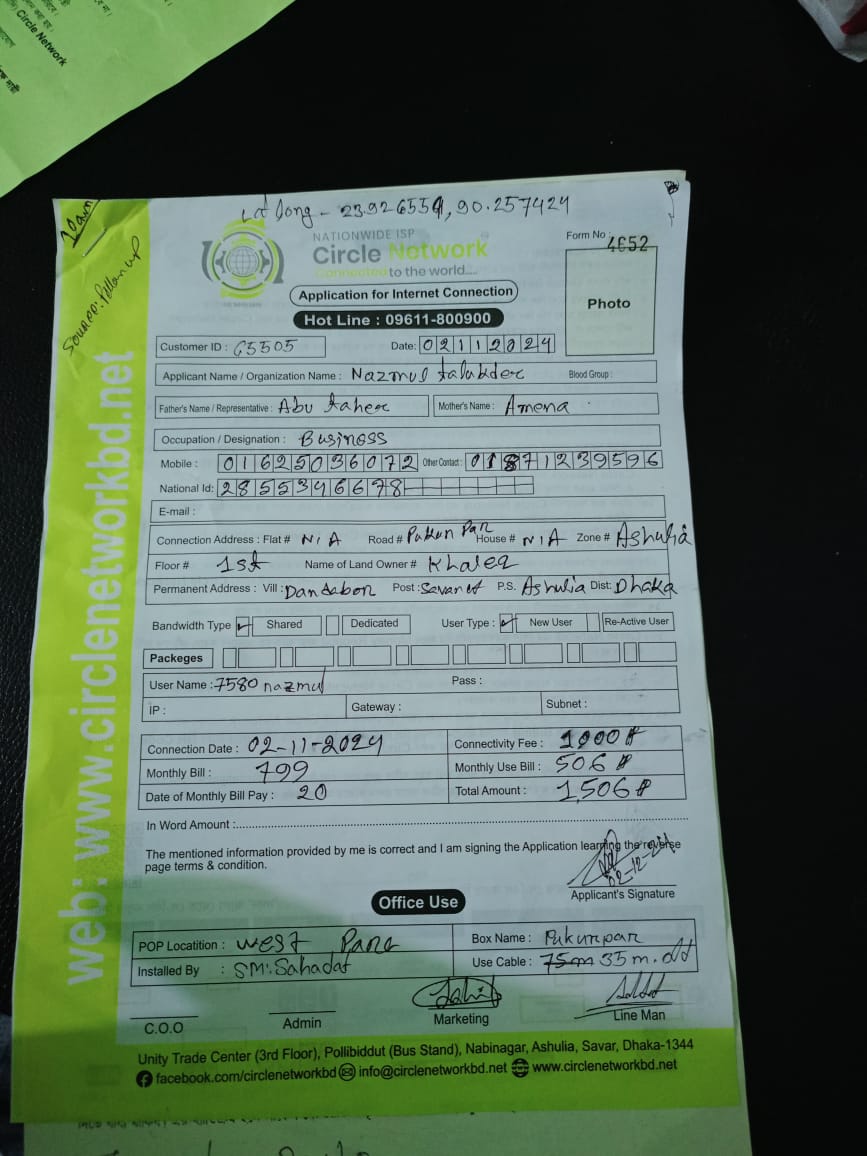 Circle Network
Lat Long - 23.926554, 90.257424
10am
Source: Follow up
NATIONWIDE ISP
Circle Network
Connected to the world....
Form No : 4652
Application for Internet Connection
Photo
Hot Line : 09611-800900
Customer ID : 65505 Date: 02112024
Applicant Name / Organization Name : Nazmul talukder Blood Group :
Father's Name / Representative : Abu taher Mother's Name : Amena
Occupation / Designation : Business
Mobile : 01625036072 Other Contact : 01871239596
National Id: 2855346678
E-mail :
Connection Address : Flat # N/A Road # Pukur Par House # N/A Zone # Ashulia
Floor # 1st Name of Land Owner # Khaleq
Permanent Address : Vill : Dandabor Post : Savar P.S. Ashulia Dist: Dhaka
Bandwidth Type ✓ Shared Dedicated User Type : ✓ New User Re-Active User
Packeges
User Name : 7580 nazmul Pass :
IP : Gateway : Subnet :
Connection Date : 02-11-2024 Connectivity Fee : 1000৳
Monthly Bill : 799 Monthly Use Bill : 506৳
Date of Monthly Bill Pay : 20 Total Amount : 1,506৳
In Word Amount :
The mentioned information provided by me is correct and I am signing the Application learning the reverse
page terms & condition.
02-12-24
Applicant's Signature
Office Use
POP Locatition : West Para Box Name : Pukurpar
Installed By : SM: Sahadat Use Cable : 75m 35 m. old
C.O.O Admin Marketing Line Man
Unity Trade Center (3rd Floor), Pollibiddut (Bus Stand), Nabinagar, Ashulia, Savar, Dhaka-1344
facebook.com/circlenetworkbd info@circlenetworkbd.net www.circlenetworkbd.net
web: www.circlenetworkbd.net